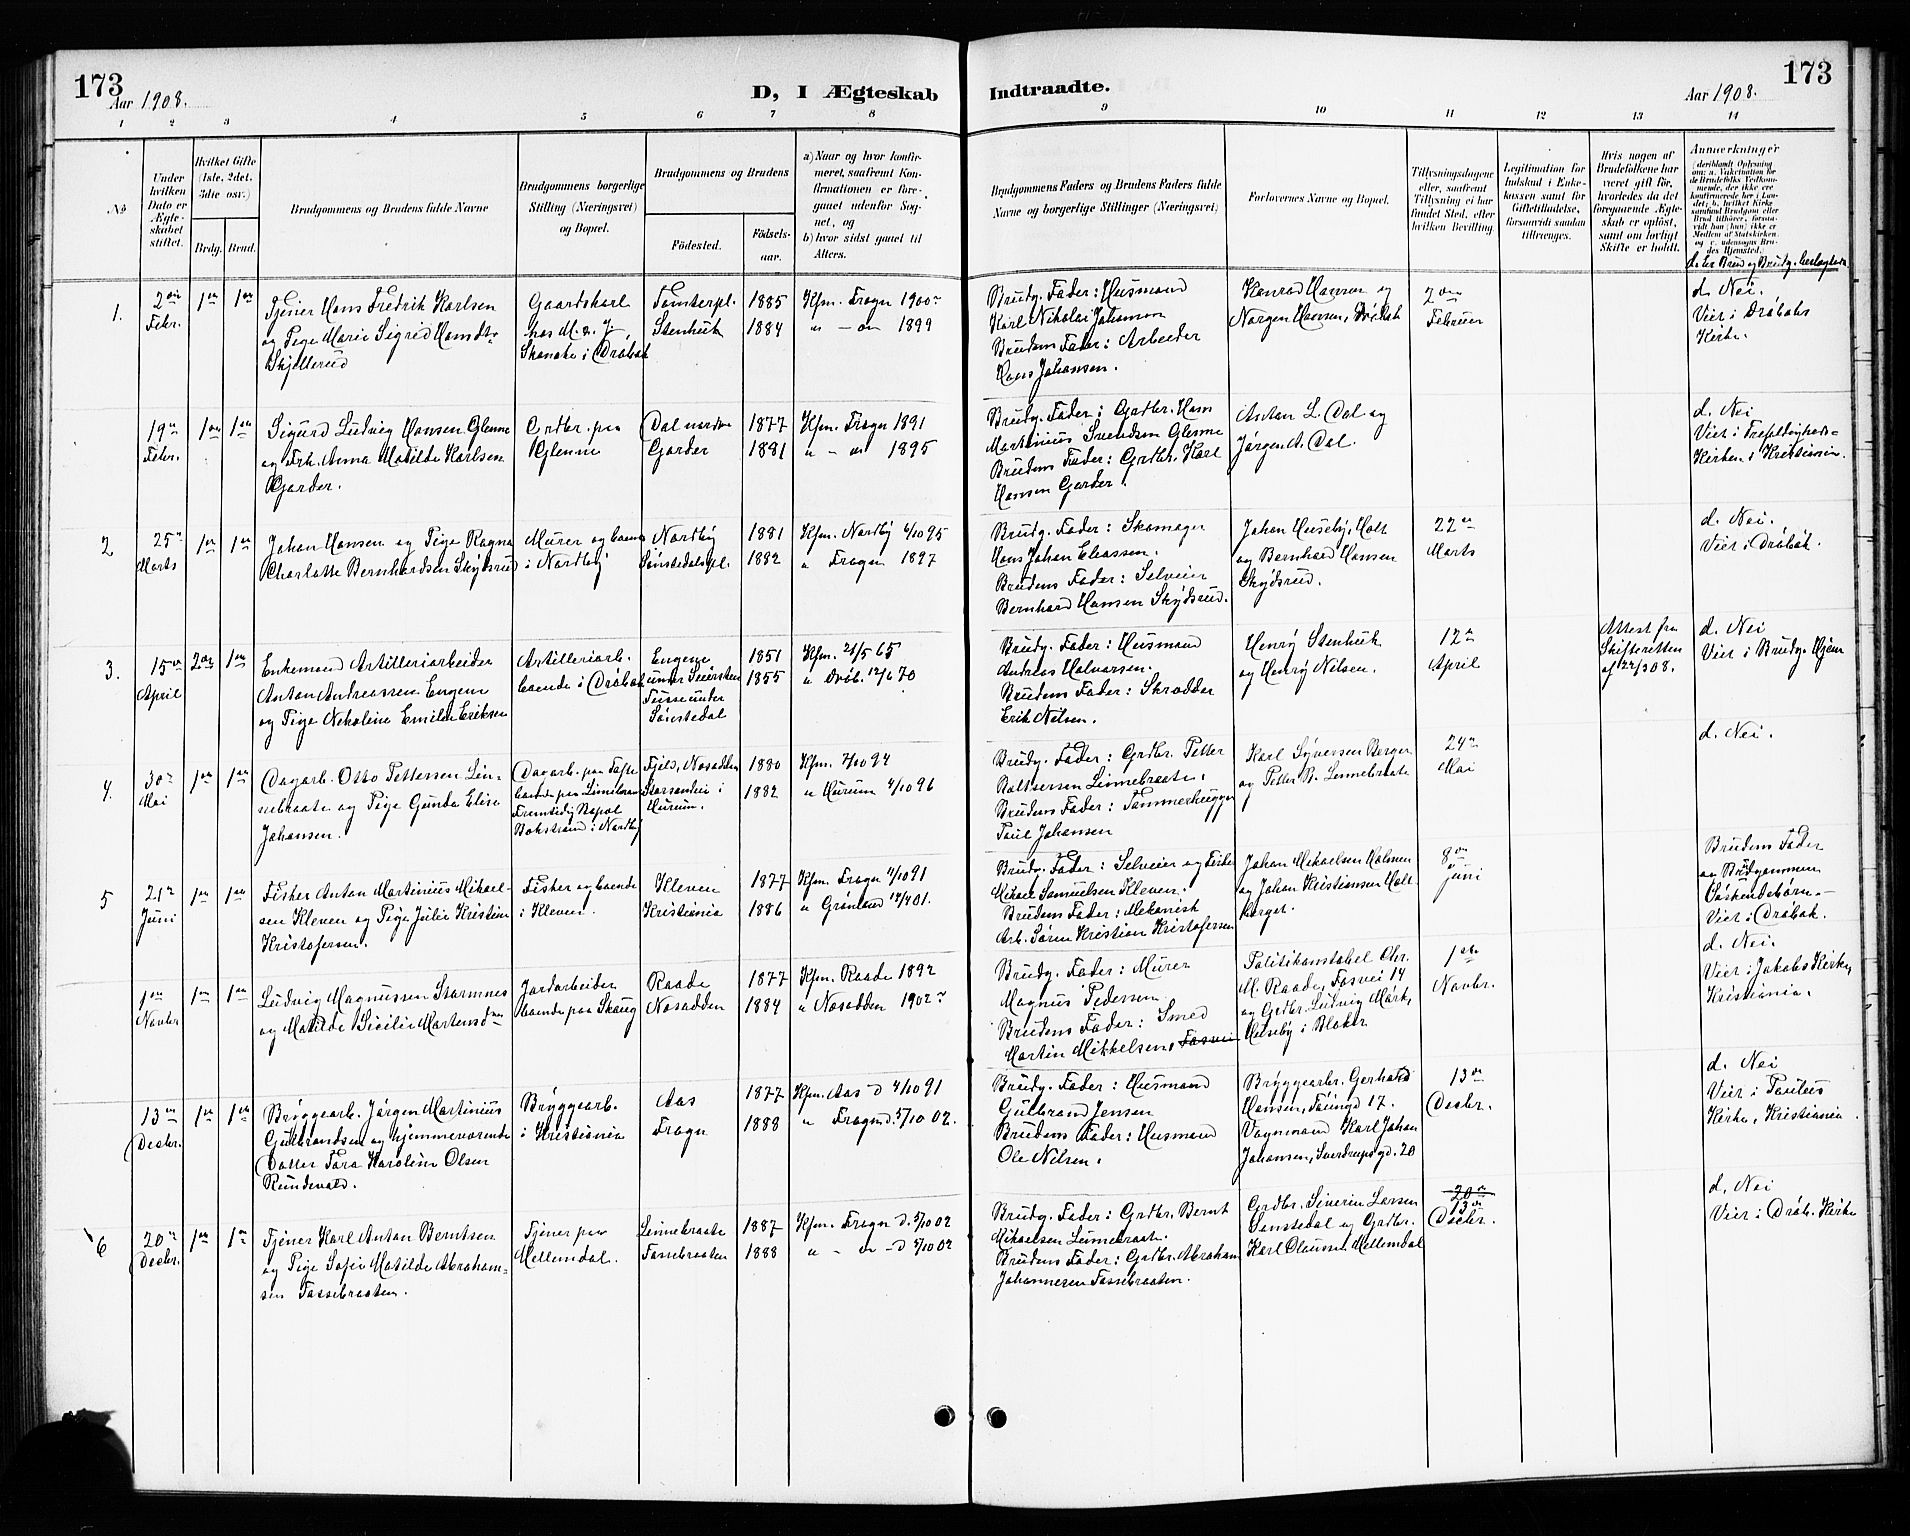 173
Aar 1908.
D, I Ægteskab
Indtraadte.
Aar 1908.
173
1 2 3 4 5 6 7 8 9 10 11 12 13 14
No
Under hvilken Dato er Ægteskabet stiftet.
Hvilket Gifte (1ste, 2det, 3die osv.)
Brdg. Brud.
Brudgommens og Brudens fulde Navne
Brudgommens borgerlige Stilling (Næringsvei) og Bopæl.
Brudgommens og Brudens
Fødested.
Fødselsaar.
a) Naar og hvor konfirmeret, saafremt Konfirmationen er foregaaet udenfor Sognet, og
b) hvor sidst gaaet til Alters.
Brudgommens Faders og Brudens Faders fulde Navne og borgerlige Stillinger (Næringsvei)
Forlovernes Navne og Bopæl.
Tillysningsdagene eller, saafremt Tillysning ei har fundet Sted, efter hvilken Bevilling.
Legitimation for Indskud i Enkekassen samt for Giftetilladelse, forsaavidt saadan tiltrænges.
Hvis nogen af Brudefolkene har været gift før, hvorledes da det foregaaende Ægteskab er opløst, samt om lovligt Skifte er holdt.
Anmærkninger
d. Er Brud og Brudg. beslægtede
1.
2den Febr.
1ste 1ste
Tjener Hans Fredrik Karlsen
og Pige Marie Sigrid Hansdtr
Skjellerud
Gaardskarl
hos M. &amp; J.
Skanske i Drøbak
Tomterpl.
Stenhuk
1885
1884
Kfm. Frogn 1900
" — " 1899
Brudg. Fader: Husmand
Karl Nikolai Johanson
Brudens Fader: Arbeider
Hans Johansen.
Konrad Hansen og
Norgen Hansen, Drøbak
2den
Februar
d. Nei.
Viet i Drøbaks
Kirke.
19de
Febr.
1ste 1ste
Sigurd Ludvig Hansen Glenne
og Frk. Anna Matilde Karlsen
Garder.
Grdbr. paa
Glenne
Dal nordre
Garder
1877
1881
Kfm. Frogn 1891
" — " 1895
Brudg. Fader: Grdbr. Hans
Martinius Svendsen Glenne
Brudens Fader: Grdbr. Karl
Hansen Garder.
Anton L. Dal og
Jørgen A. Dal.
d. Nei
Viet i Trefoldigheds-
Kirken i Kristiania.
2
25de
Marts
1ste 1ste
Johan Hansen og Pige Ragna
Charlotte Bernhardsen Skydsrud
Murer og boende
i Nordby
Nordby
Sønstedalspl.
1881
1882
Kfm. Nordby 6/10 95
" Frogn 1897
Brudg. Fader: Skomager
Hans Johan Eliassen.
Brudens Fader: Selveier
Bernhard Hansen Skydsrud.
Johan Huseby, Holt
og Bernhard Hansen
Skydsrud.
22de
Marts
d. Nei.
Viet i Drøbak.
3.
15de
April
2den 1ste
Enkemand Artilleriarbeider
Anton Andreassen Engene
og Pige Nikoline Emilie Eriksen
Artilleriarb.
boende i Drøbak
Engene
under Seiersten
Tusse under
Sønstedal
1851
1855
Kfm. 21/5 65
" Drøb. 12/6 70
Brudg. Fader: Husmand
Andreas Halvorsen.
Brudens Fader: Skrædder
Erik Nilsen.
Henry Stenhuk
og Henry Nilsen.
12te
April
Attest fra
Skifteretten
af 22/3 08.
d. Nei
Viet i Brudg. Hjem
4.
30te
Mai
1ste 1ste
Dagarb. Otto Pettersen Lin-
nebraate og Pige Gunda Elise
Johansen.
Dagarb. paa Tofte
boende paa Linnebraate
Fremtidig Bopæl
Bokstrand i Nordby
Fjeld, Nesodden
Storsanden i
Hurum.
1880
1882
Kfm. 7/10 94
" Hurum 4/10 96
Brudg. Fader: Grdbr. Petter
Baltsersen Linnebraate.
Brudens Fader: Tømmerhugger
Paul Johansen
Karl Syversen Berger
og Petter B. Linnebraate
24de
Mai
d. Nei.
5
21de
Juni
1ste 1ste
Fisker Anton Martinius Mikael-
sen Kleven og Pige Julie Kristine
Kristofersen.
Fisker og boende
i Kleven.
Kleven
Kristiania
1877
1886
Kfm. Frogn 4/10 91
" Grønland 14/4 01.
Brudg. Fader: Selveier og Fisker
Mikael Samuelsen Kleven.
Brudens Fader: Mekanisk
Arb. Søren Kristian Kristofersen
Johan Mikaelsen Holmen
og Johan Kristiansen Holt-
berget.
8de
Juni
Brudens Fader
og Brudgommen
Søskendebørn.—
Viet i Drøbak.
1ste
Novbr
1ste 1ste
Ludvig Magnussen Stormnes
og Matilde Sicilie Martinsdtr
Jordarbeider
boende paa Skaug
Raade
Nesodden
1877
1884
Kfm. Raade 1892
" Nesodden 1902
Brudg. Fader: Murer
Magnus Pedersen
Brudens Fader: Smed
Martin Mikkelsen,
Politikonstabel Chr.
M. Raade, Fosvei 14
og Grdbr. Ludvig Mørk,
Huseby i Blaker
1ste
Novbr.
d. Nei.
Viet i Jakobs Kirke,
Kristiania.
13de
Desbr.
1ste 1ste
Bryggearb. Jørgen Martinius
Gulbrandsen og hjemmeværende
Datter Tora Karoline Olsen
Rundevold.
Bryggearb.
i Kristiania
Aas
Frogn
1877
1888
Kfm. Aas d 4/10 91
" Frogn d. 5/10 02.
Brudg. Fader: Husmand
Gulbrand Jensen
Brudens Fader: Husmand
Ole Nilsen.
Bryggearb. Gerhard
Hansen, 17.
Vognmand Karl Johan
Johansen, Sverdrupsgd. 20
13de
Desbr.
d. Nei
Viet i Paulus
Kirke, Kristiania.
6
20de
Desbr.
1ste 1ste
Tjener Karl Anton Berntsen
og Pige Sofie Matilde Abraham-
sen Fossebraaten.
Tjener paa
Mellemdal.
Linnebraate
Fossebraaten
1887
1888
Kfm. Frogn d. 5/10 02
" — " — d 5/10 02
Brudg. Fader: Grdbr. Bernt
Mikaelsen Linnebraate.
Brudens Fader: Grdbr. Abraham
Johannesen Fossebraaten.
Grdbr. Siverin Larsen
Sønstedal og Grdbr.
Karl Olaussen Mellemdal
20de
13de
Desbr.
d. Nei
Viet i Drøb. Kirke